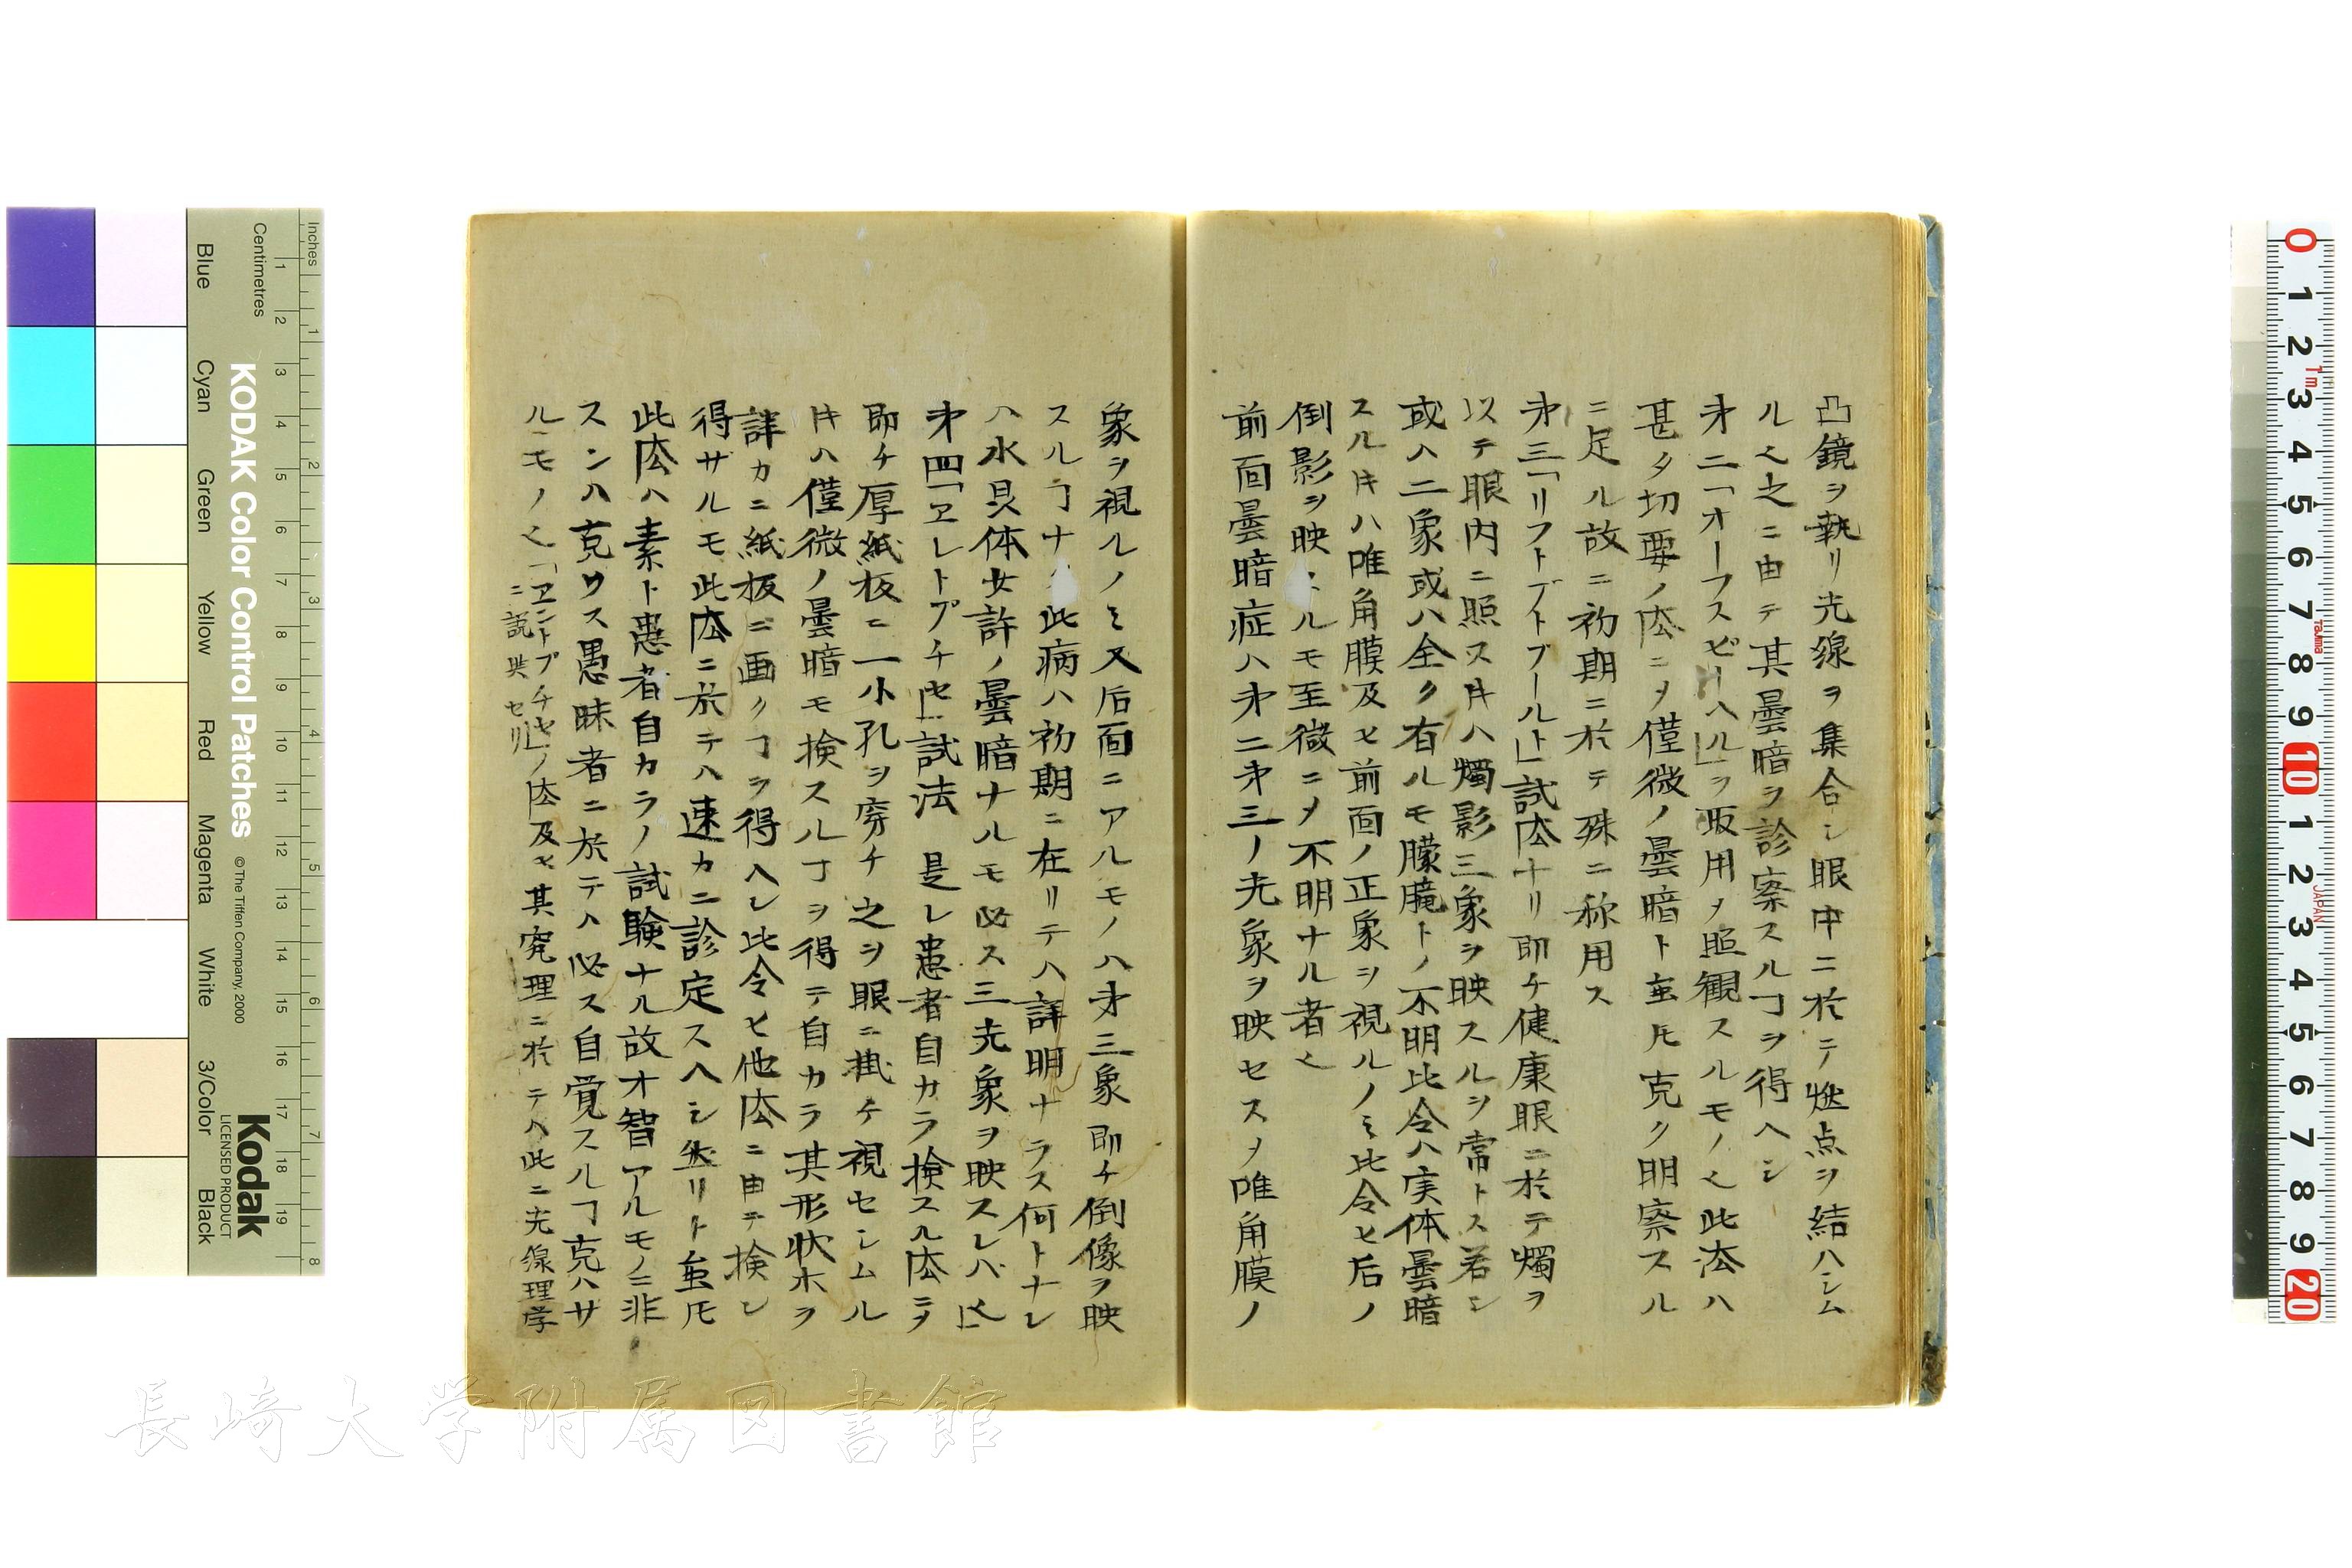 凸鏡ヲ執リ光線ヲ集合シ眼中ニ於テ燃点ヲ結ハシム
ル之ニ由テ其曇暗ヲ診察スルヿヲ得ヘシ
㐧二「オーフスピーヘル」ヲ取用メ照観スルモノ此法ハ
甚タ切要ノ㳒ニメ僅微ノ曇暗ト虽𪜈克ク明察スル
ニ足ル故ニ初期ニ於テ殊ニ称用ス
㐧三「リフトデトプールト」試㳒ナリ即チ健康眼ニ於テ燭ヲ
以テ眼内ニ照スキハ燭影三象ヲ映スルヲ常トス若シ
或ハ二象或ハ全ク有ルモ朦朧トノ不明比令ハ実体曇暗
スルキハ唯角膜及ヒ前面ノ正象ヲ視ルノミ比令ヒ后ノ
倒影ヲ映スルモ至微ニメ不明ナル者
前面曇暗症ハ㐧二㐧三ノ光象ヲ映セスメ唯角膜ノ
象ヲ視ルノミ又后面ニアルモノハ㐧三象即チ倒像ヲ映
スルヿナ此病ハ初期ニ在リテハ詳明ナラス何トナレ
ハ水晶体少許ノ曇暗ナルモ必ス三光象ヲ映スレバ
㐧四「ヱレトプチセ」試法 是レ患者自カラ検スル㳒ニメ
即チ厚紙板ニ一小孔ヲ穿チ之ヲ眼ニ掛ケ視セシムル
キハ僅微ノ曇暗モ検スルヿヲ得テ自カラ其形状ホヲ
詳カニ紙板ニ画クヿヲ得ヘシ比令ヒ他㳒ニ由テ検シ
得サルモ此㳒ニ於テハ速カニ診定スヘシ然リト虽𪜈
此㳒ハ素ト患者自カラノ試験ナル故才智アルモノニ非
スンハ克ワス愚昧者ニ於テハ必ス自覚スルヿ克ハサ
ルモノ「ヱントプチセ」ノ㳒及ヒ其究理ニ於テハ此ニ光線理学
ニ説セリ
長崎大学附属図書館
Inches
Centimetres
KODAK Color Control Patches
© The Tiffen Company, 2000
Kodak
LICENSED PRODUCT
Blue Cyan Green Yellow Red Magenta White 3/Color Black
1 2 3 4 5 6 7 8
1 2 3 4 5 6 7 8 9 10 11 12 13 14 15 16 17 18 19
0 1 2 3 4 5 6 7 8 9 10 1 2 3 4 5 6 7 8 9 20
1m
Tajima
JAPAN